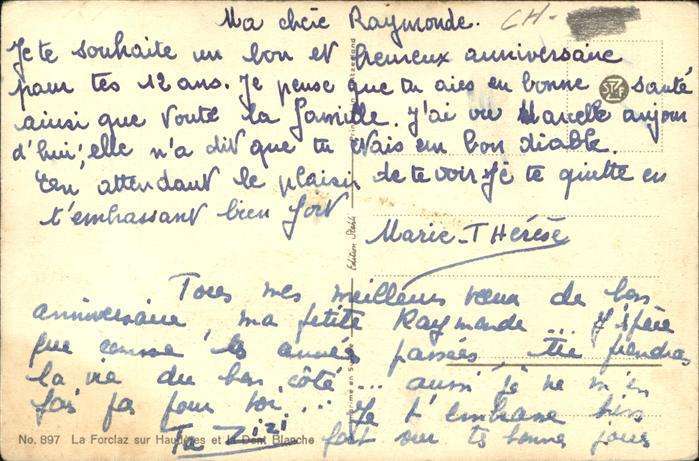 Ma chère Raymonde.
CH-
Je te souhaite un bon et heureux anniversaire
pour tes 12 ans. Je pense que tu aies en bonne santé
ainsi que toute la famille. J'ai vu Marcelle aujour
d'hui; elle n'a dit que tu étais em bon diable.
En attendant le plaisir de te voir Je te quitte en
t'embrassant bien fort
Marie-Thérèse
Edition Stehli
Tous mes meilleurs vœux de bon
anniversaire, ma petite Raymonde... J'espère
que comme les années passées tu prendras
la vie du bon côté... aussi je ne m'en
fais pas pour toi... Je t'embrasse bien
fort sur tes bonnes joues
Ta Zizi
No. 897 La Forclaz sur Haudères et la Dent Blanche